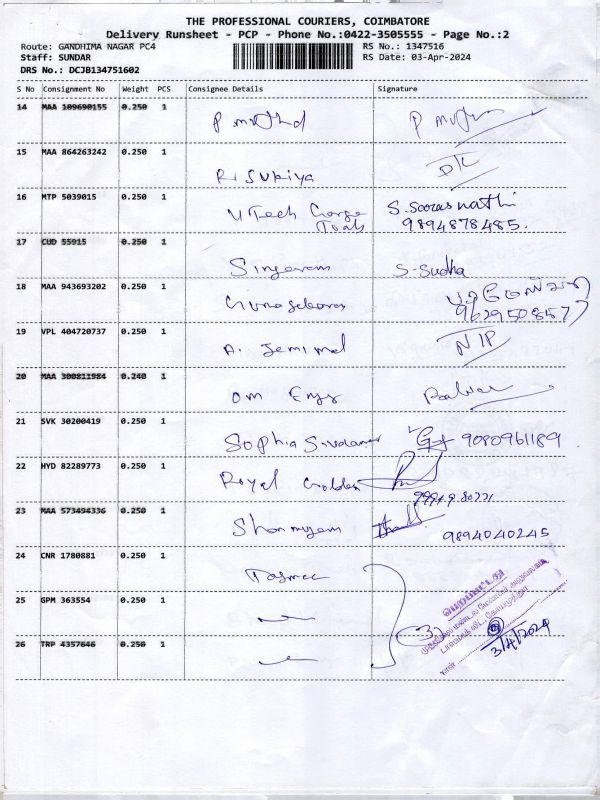 THE PROFESSIONAL COURIERS, COIMBATORE
Delivery Runsheet - PCP - Phone No.:0422-3505555 - Page No.:2
Route: GANDHIMA NAGAR PC4
Staff: SUNDAR
DRS No.: DCJB134751602
RS No.: 1347516
RS Date: 03-Apr-2024
S No Consignment No Weight PCS Consignee Details Signature
14 MAA 109690155 0.250 1
15 MAA 864263242 0.250 1 R. Supriya
16 MTP 5039015 0.250 1 S. Sooras nathi
9894878485.
17 CUD 55915 0.250 1 S-Sudha
18 MAA 943693202 0.250 1
9629508577
19 VPL 404720737 0.250 1 A. Jemimal NIP
20 MAA 300811984 0.240 1 Om Engg
21 SVK 30200419 0.250 1 Sophia 9080961189
22 HYD 82289773 0.250 1 Royal Golden
23 MAA 573494336 0.250 1 Shanmugam 9894040245
24 CNR 1780881 0.250 1 Tasmac
25 GPM 363554 0.250 1
26 TRP 4357646 0.250 1
பெறப்பட்டது
நாள் 3/4/2024